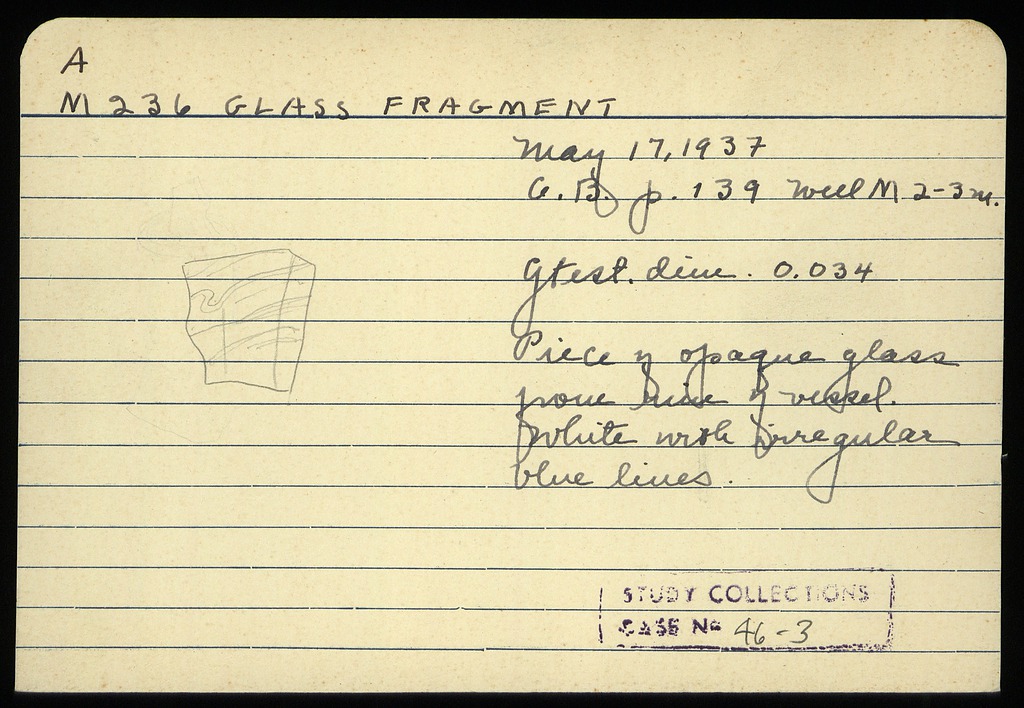 A
M 236 GLASS FRAGMENT
May 17, 1937
G.B. p. 139 Well M 2-3 m.
Gtest. dim. 0.034
Piece of opaque glass
from rim of vessel.
White with irregular
blue lines.
STUDY COLLECTIONS
CASE No 46-3